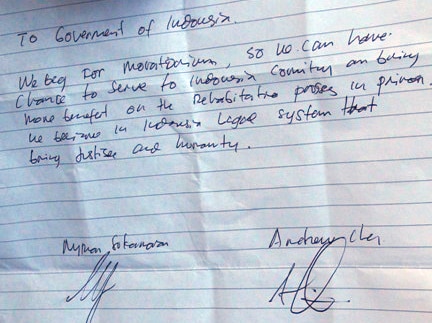 To Goverment of Indonesia.
We beg for moratorium, so we can have
Chance to serve to Indonesia Country an bring
more benefit on the Rehabitative proses in prison.
we believe in Indonesia Legal system that
bring Justise and humanity.
Myuran Sukumaran Andrew Chan